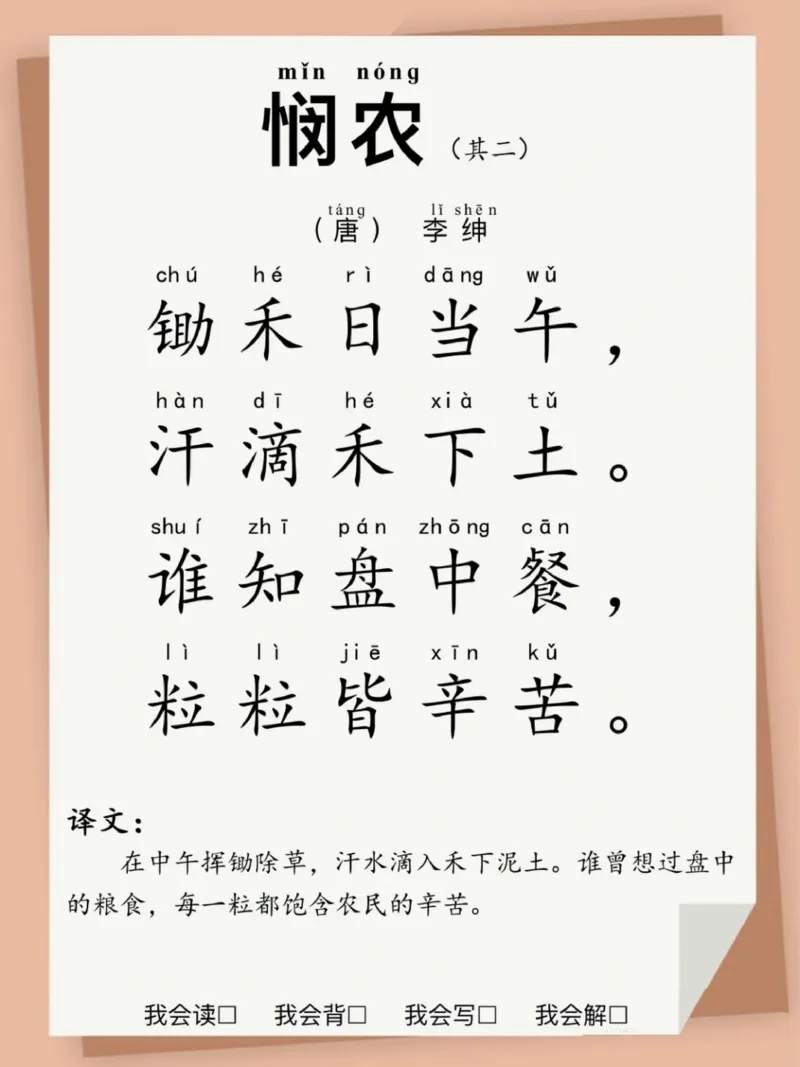 mǐn nóng
悯农（其二）
táng lǐ shēn
（唐） 李绅
chú hé rì dāng wǔ
锄禾日当午，
hàn dī hé xià tǔ
汗滴禾下土。
shuí zhī pán zhōng cān
谁知盘中餐，
lì lì jiē xīn kǔ
粒粒皆辛苦。
译文：
在中午挥锄除草，汗水滴入禾下泥土。谁曾想过盘中
的粮食，每一粒都饱含农民的辛苦。
我会读□ 我会背□ 我会写□ 我会解□